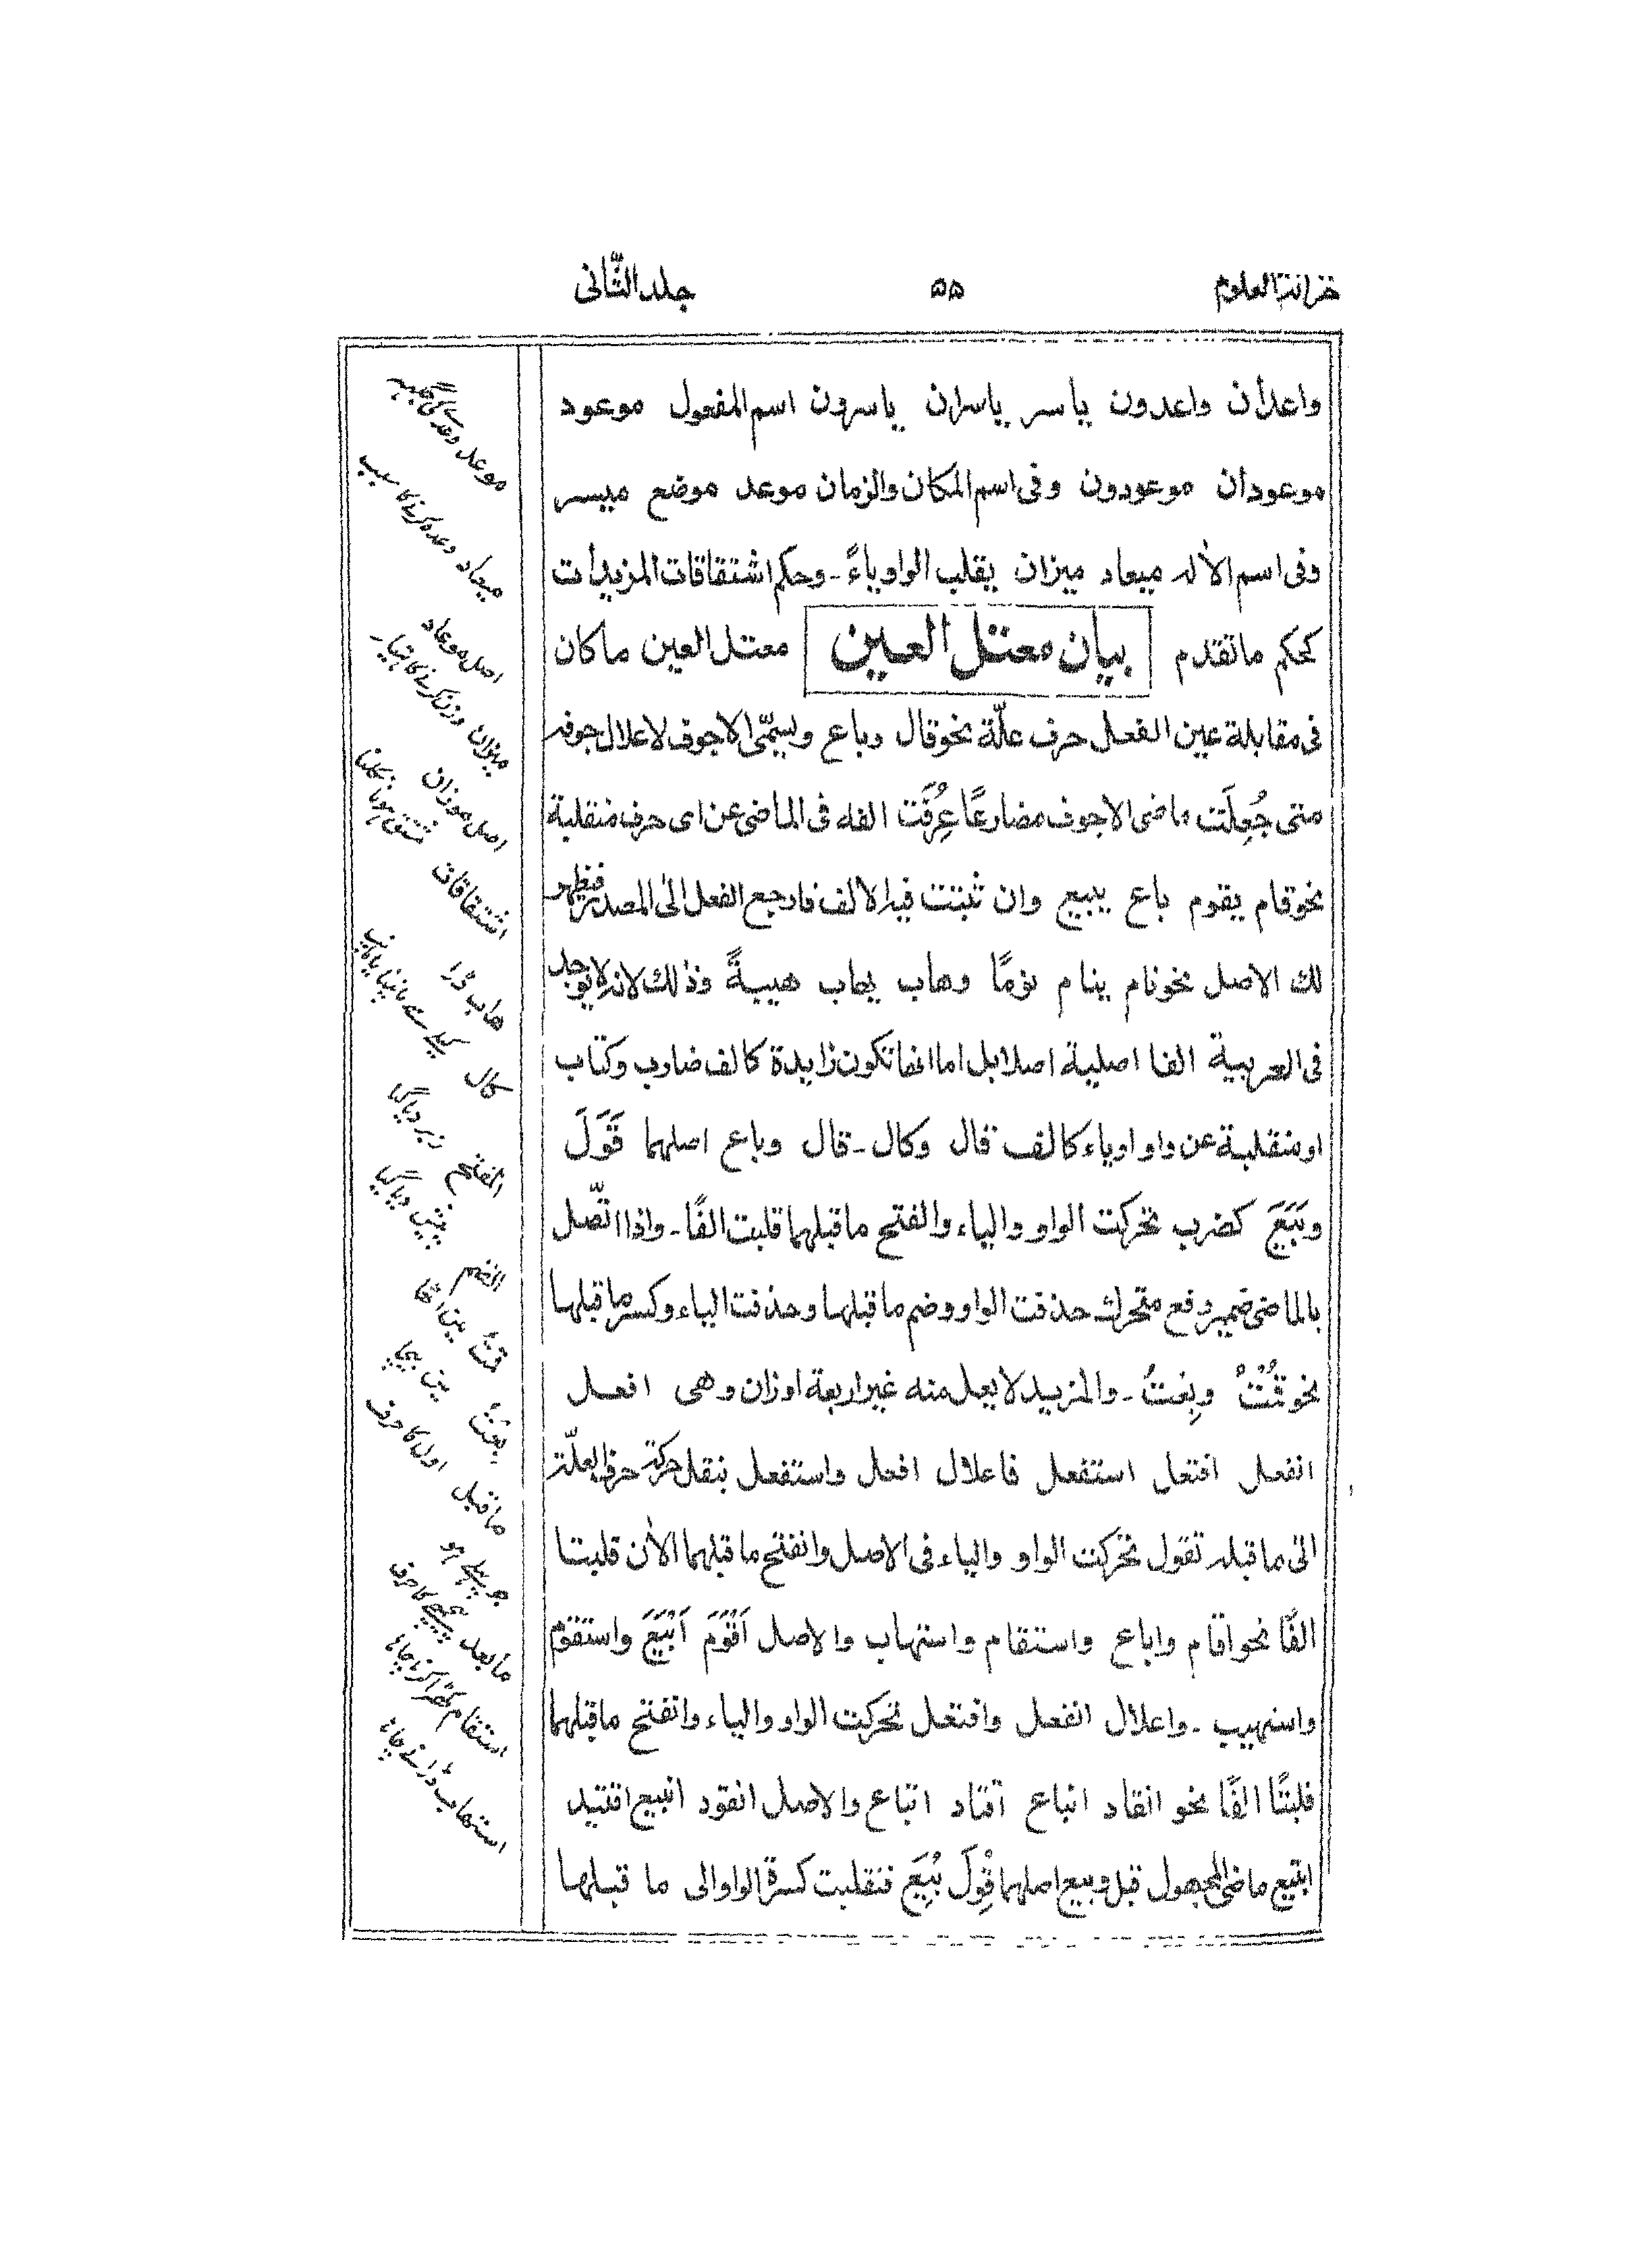 خزانة العلوم ۵۵ جلد الثّانی
واعدان واعدون یاسر یاسران یاسرون اسم المفعول موعود
موعودان موعودون وفی اسم المکان والزمان موعد موضع میسر
وفی اسم الاٰلہ میعاد میزان یقلب الواو یاءً ـ وحکم اشتقاقات المزیدات
کحکم ما تقدم بیان معتل العین معتل العین ما کان
فی مقابلة عین الفعل حرف علّة نحو قال وباع ویسمّی الاجوف لاعلال جوفہ
متی جُعِلَت ماضی الاجوف مضارعًا عِرُفَت الفہ فی الماضی عن ای حرف منقلبة
نحو قام یقوم باع یبیع وان ثبتت فیہ الالف فارجع الفعل الی المصدر فیظہر
لك الاصل نحو نام ینام نومًا وهاب یهاب هیبةً وذٰلك لانہ لا توجد
فی العربیة الفا اصلیة اصلا بل اما انها تکون زایدة کالف ضارب وکتاب
او منقلبة عن واو او یاء کالف قال وکال ـ قال وباع اصلهما قَوَلَ
وبَیَعَ کضرب تحرکت الواو والیاء والفتح ما قبلهما قلبت الفًا ـ واذا اتّصل
بالماضی ضمیر رفع متحرك حذفت الواو وضم ما قبلها وحذفت الیاء وکسر ما قبلها
نحو قُمْتُ وبِعتُ ـ والمزید لا یعل منه غیر اربعة اوزان وهی افعل
انفعل افتعل استفعل فاعلال افعل واستفعل بنقل حرکة حرف العلّة
الی ما قبلہ تقول تحرکت الواو والیاء فی الاصل وانفتح ما قبلهما الاٰن قلبتا
الفًا نحو اقام واباع واستقام واستهاب والاصل اَقْوَمَ اَبْیَعَ واستقوم
واستهیب ـ واعلال انفعل وافتعل تحرکت الواو والیاء وانفتح ما قبلهما
قلبتا الفًا نحو انقاد انباع اقتاد ابتاع والاصل انقود انبیع اقتید
ابتیع ماضی المجهول قیل وبیع اصلهما قُوِلَ بُیِعَ فنقلبت کسرة الواو الی ما قبلها
موعد وعدہ کی جگہہ
میعاد وعدہ کرنے کا سبب
اصل موعاد
میزان وزن کرنے کا ہتیار
اصل موزان
اشتقاقات مشتق ہونا نکلنا
هاب ڈرا
کال
الفتح زبر دیا گیا
الضم پیش دیا گیا
قمتُ میں اٹھا
بعتُ میں بیچا
ماقبل اول کا حرف
جو پہلے ہو
مابعد پیچھے کا حرف
استقام کھڑا کرنا چاہا
استهاب ڈرانے چاہا